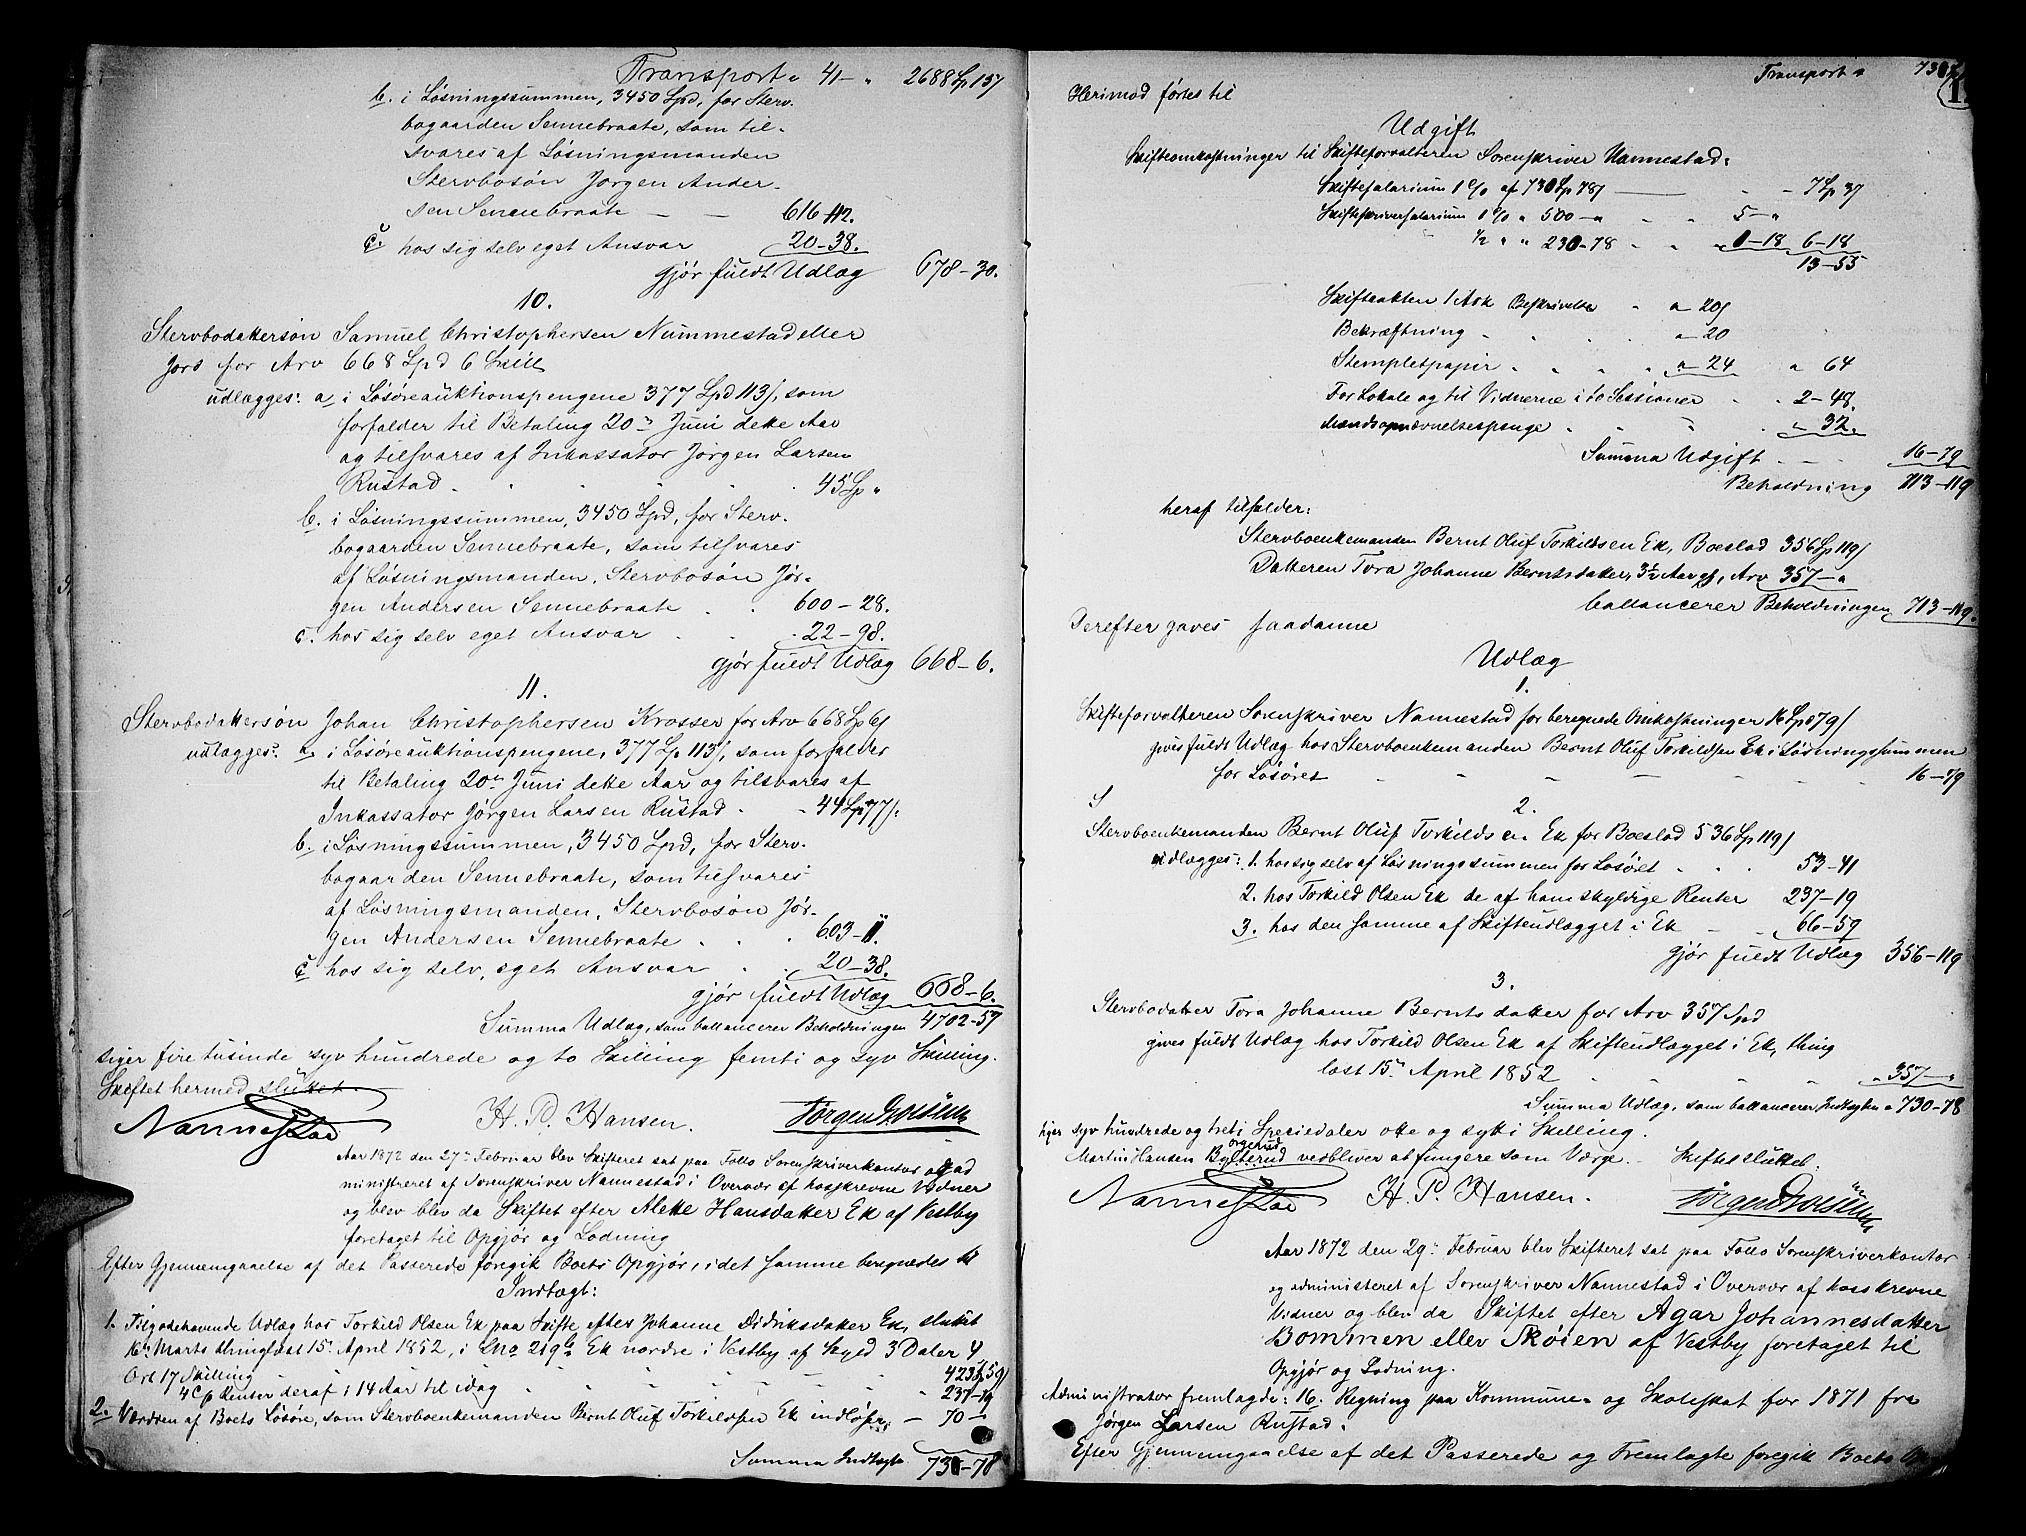 Transport " 41 – " 2688 Sp 15ʃ
b. i Løsningssummen, 3450 Spd, for Sterv-
bogaarden Sennebraate, som til-
svares af Løsningsmanden
Stervbosøn Jørgen Ander-
sen Sennebraate – – 616-112.
c. hos sig selv eget Ansvar 20-38.
gjør fuldt Udlæg 678-30.
10.
Stervbodattersøn Samuel Christophersen Nummestad eller
Jors for Arv 668 Spd 6 Skill
udlægges: a. i Løsøreauktionspengene 377 Spd 113ʃ, som
forfalder til Betaling 20de Juni dette Aar
og tilsvares af Inkassator Jørgen Larsen
Rustad . . . . 45 Sp "
b. i Løsningssummen, 3450 Spd, for Sterv-
bogaarden Sennebraate, som tilsvares
af Løsningsmanden, Stervbosøn Jør-
gen Andersen Sennebraate . . 600-28.
c. hos sig selv eget Ansvar . . 22-98.
gjør fuldt Udlæg 668-6.
11.
Stervbodattersøn Johan Christophersen Krosser for Arv 668 Sp 6ʃ
udlægges: a. i Løsøreauktionspengene, 377 Sp 113ʃ, som forfalder
til Betaling 20de Juni dette Aar og tilsvares af
Inkassator Jørgen Larsen Rustad . - 44 Sp 77ʃ.
b. i Løsningssummen, 3450 Spd, for Sterv-
bogaarden Sennebraate, som tilsvares
af Løsningsmanden, Stervbosøn Jør-
gen Andersen Sennebraate . . 603-11.
c. hos sig selv, eget Ansvar . . 20-38.
gjør fuldt Udlæg 668-6.
Summa Udlæg, som ballancerer Beholdningen 4702-57
siger fire tusinde syv hundrede og to Skilling femti og syv Skilling.
Skiftet hermed sluttet.
Nannestad H. P. Hansen.
Aar 1872 den 27de Februar blev Skifteret sat paa Follo Sorenskriverkontor og ad
ministreret af Sorenskriver Nannestad i Overvær af hosskrevne Vidner
og blev blev da Skiftet efter Alette Hansdatter Ek af Vestby
foretaget til Opgjør og Lodning
Efter Gjennemgaaelse af det Passerede foregik Boets Opgjør, idet Samme beregnedes til
Indtægt:
1. Tilgodehavende Udlæg hos Torkild Olsen Ek paa Skifte efter Johanne Didriksdatter Ek, sluttet
6te Marts thinglæst 15de April 1852, i Lno 219b Ek nordre i Vestby af Skyld 3 Daler 4
Ort 17 Skilling . . . . . 423 Sp 59ʃ
4 % Renter deraf i 14 Aar til idag . . . . 237-19
2. Værdien af Boets Løsøre, som Stervboenkemanden Bernt Oluf Torkildsen Ek indløser – 70 –
Summa Indtægt 730-78
Transport " 730
Herimod førtes til
Udgift
Skifteomkostninger til Skifteforvalteren Sorenskriver Nannestad:
Skiftesalarium 1 % af 730 Sp 78ʃ – " - 7 Sp 37
Skifteskriversalarium 1 % " 500 – " " " 5 – "
½ " " 230-78 " " " 1-18 6-18
13-55
Skifteakten 1 Ark Beskrivelse " " 20ʃ
Bekræftning . . . . " 20
Stempletpapir . . . . " 24 " 64
For Lokale og til Vidnerne i to Sessioner . . 2-48.
Mandsopnævnelsespenge . . . . " 32.
Summa Udgift . – . 16-79
Beholdning 713-119
heraf tilfalder:
Stervboenkemanden Bernt Oluf Torkildsen Ek, Boeslod 356 Sp 119ʃ
Datteren Tora Johanne Berntsdatter, 3½ Aar gl, Arv 357 – "
ballancerer Beholdningen 713-119.
Derefter gaves saadanne
Udlæg
1.
Skifteforvalteren Sorenskriver Nannestad for beregnede Omkostninger 16 Sp 79ʃ
gives fuldt Udlæg hos Stervboenkemanden Bernt Oluf Torkildsen Ek i Løsningssummen
for Løsøret – – – – – 16-79
2.
Stervboenkemanden Bernt Oluf Torkildsen Ek for Boeslod 536 Sp 119ʃ
udlægges: 1. hos sig selv af Løsningssummen for Løsøret . . . 53-41
2. hos Torkild Olsen Ek de af ham skyldige Renter 237-19
3. hos den Samme af Skifteudlægget i Ek – . 66-59
gjør fuldt Udlæg 356-119
3.
Stervbodatter Tora Johanne Berntsdatter for Arv 357 Spd
gives fuldt Udlæg hos Torkild Olsen Ek af Skifteudlægget i Ek, thing
læst 15de April 1852 . . . . " 357 – "
Summa Udlæg, som ballancerer Indtægten " 730-78
siger syv hundrede og treti Speciedaler otte og sytti Skilling.
Martin Hansen Bylterud vedbliver at fungere som Værge. Skiftet sluttet.
Nannestad H. P. Hansen.
Aar 1872 den 29de Februar blev Skifteret sat paa Follo Sorenskriverkontor
og administeret af Sorenskriver Nannestad i Overvær af hosskrevne
Vidner og blev da Skiftet efter Agar Johannesdatter
Bommen eller Skøien af Vestby foretaget til
Opgjør og Lodning.
Administrator fremlagde: 16. Regning paa Kommune- og Skoleskat for 1871 fra
Jørgen Larsen Rustad.
Efter Gjennemgaaelse af det Passerede og Fremlagte foregik Boets Op